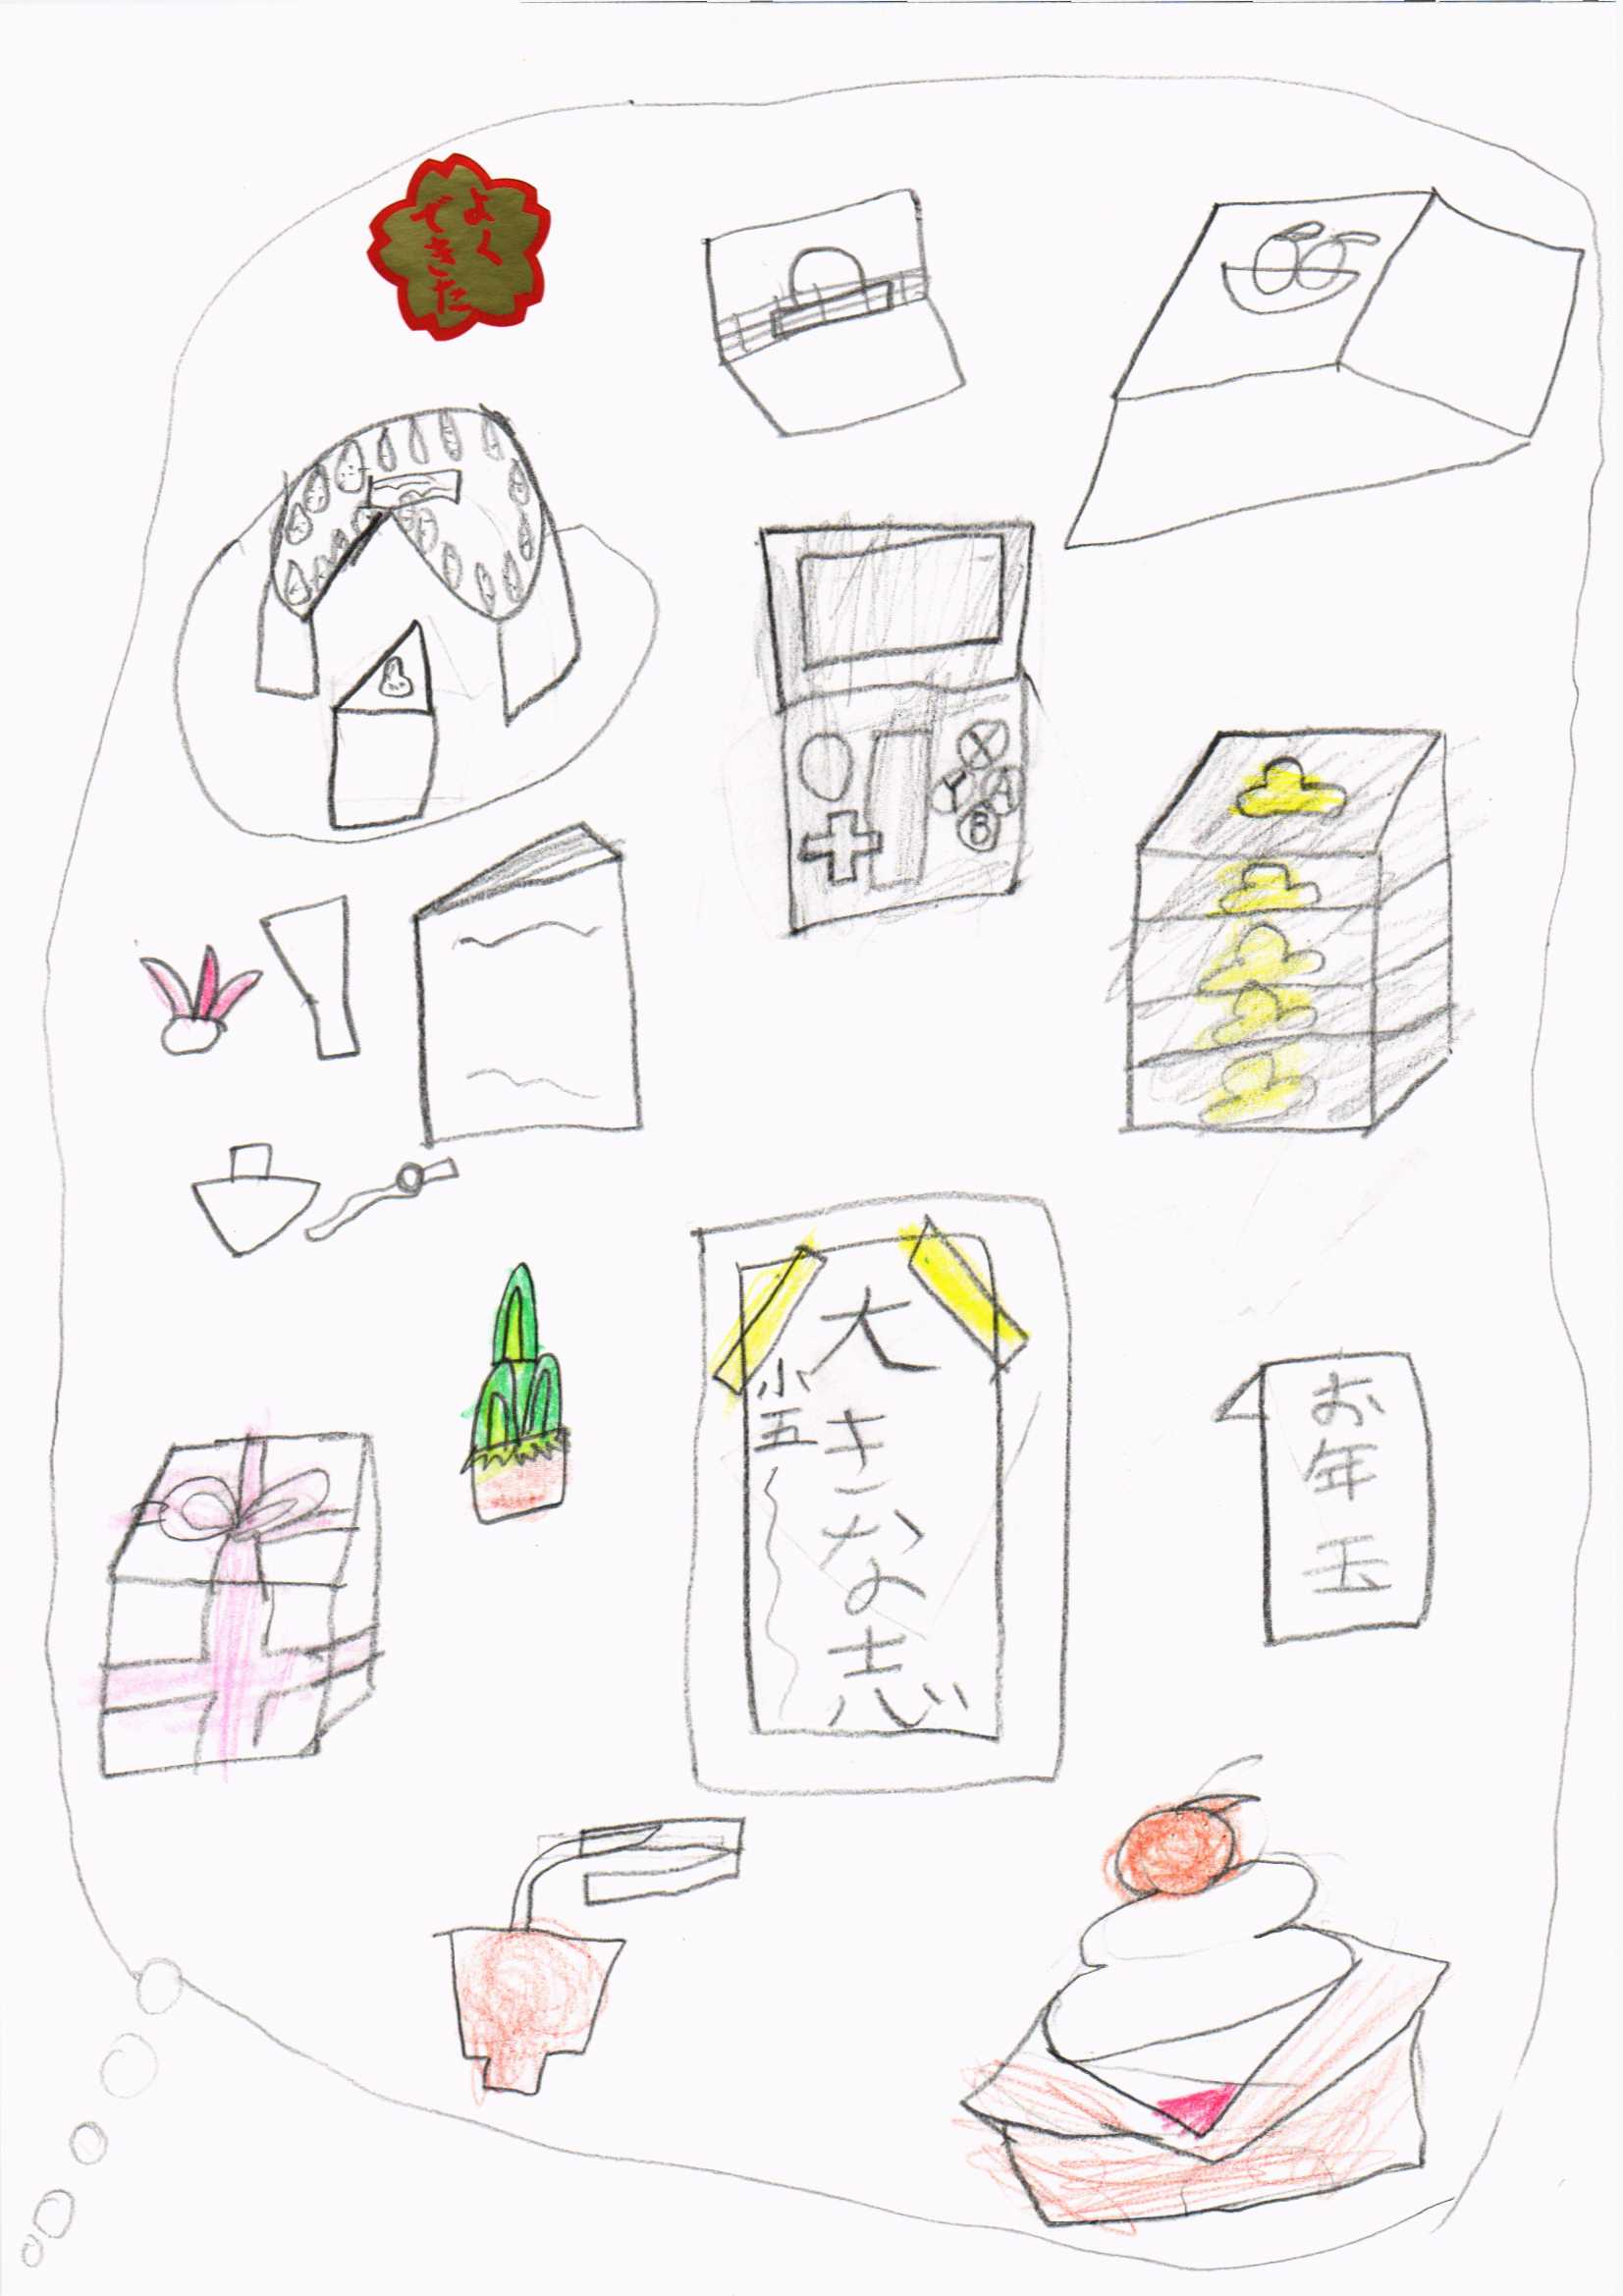 よく
できた
X
Y A
B
大きな志
小五
お年玉